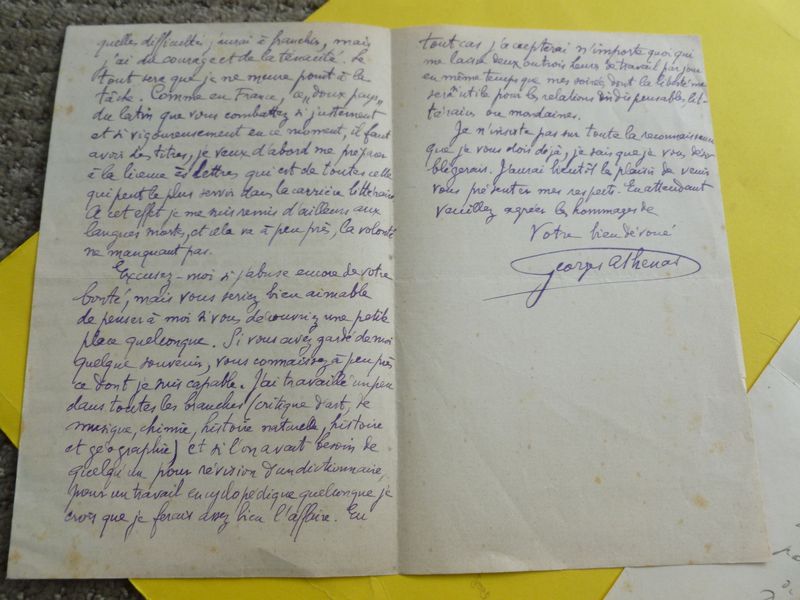 quelles difficultés j'aurai à franchir, mais
j'ai du courage et de la ténacité. Le
tout sera que je ne meure point à la
tâche. Comme en France, ce "doux pays"
du latin que vous combattez si justement
et si vigoureusement en ce moment, il faut
avoir des titres, je veux d'abord me préparer
à la licence ès lettres qui est de toutes celle
qui peut le plus servir dans la carrière littéraire
A cet effet je me suis remis d'ailleurs aux
langues mortes, et cela va à peu près, la volonté
ne manquant pas.
Excusez-moi si j'abuse encore de votre
bonté, mais vous seriez bien aimable
de penser à moi si vous découvriez une petite
place quelconque. Si vous avez gardé de moi
quelque souvenir, vous connaissez à peu près
ce dont je suis capable. J'ai travaillé un peu
dans toutes les branches (critique d'art, de
musique, chimie, histoire naturelle, histoire
et géographie) et si l'on avait besoin de
quelqu'un pour révision d'un dictionnaire,
pour un travail encyclopédique quelconque je
crois que je ferais assez bien l'affaire. En
tout cas j'accepterai n'importe quoi qui
me laisse deux ou trois heures de travail par jour
en même temps que mes soirées dont la liberté me
sera utile pour les relations indispensables, lit-
téraires ou mondaines.
Je n'insiste pas sur toute la reconnaissance
que je vous dois déjà, je sais que je vous déso-
bligerais. J'aurai bientôt le plaisir de venir
vous présenter mes respects. En attendant
veuillez agréer les hommages de
Votre bien dévoué
Georges Athénas